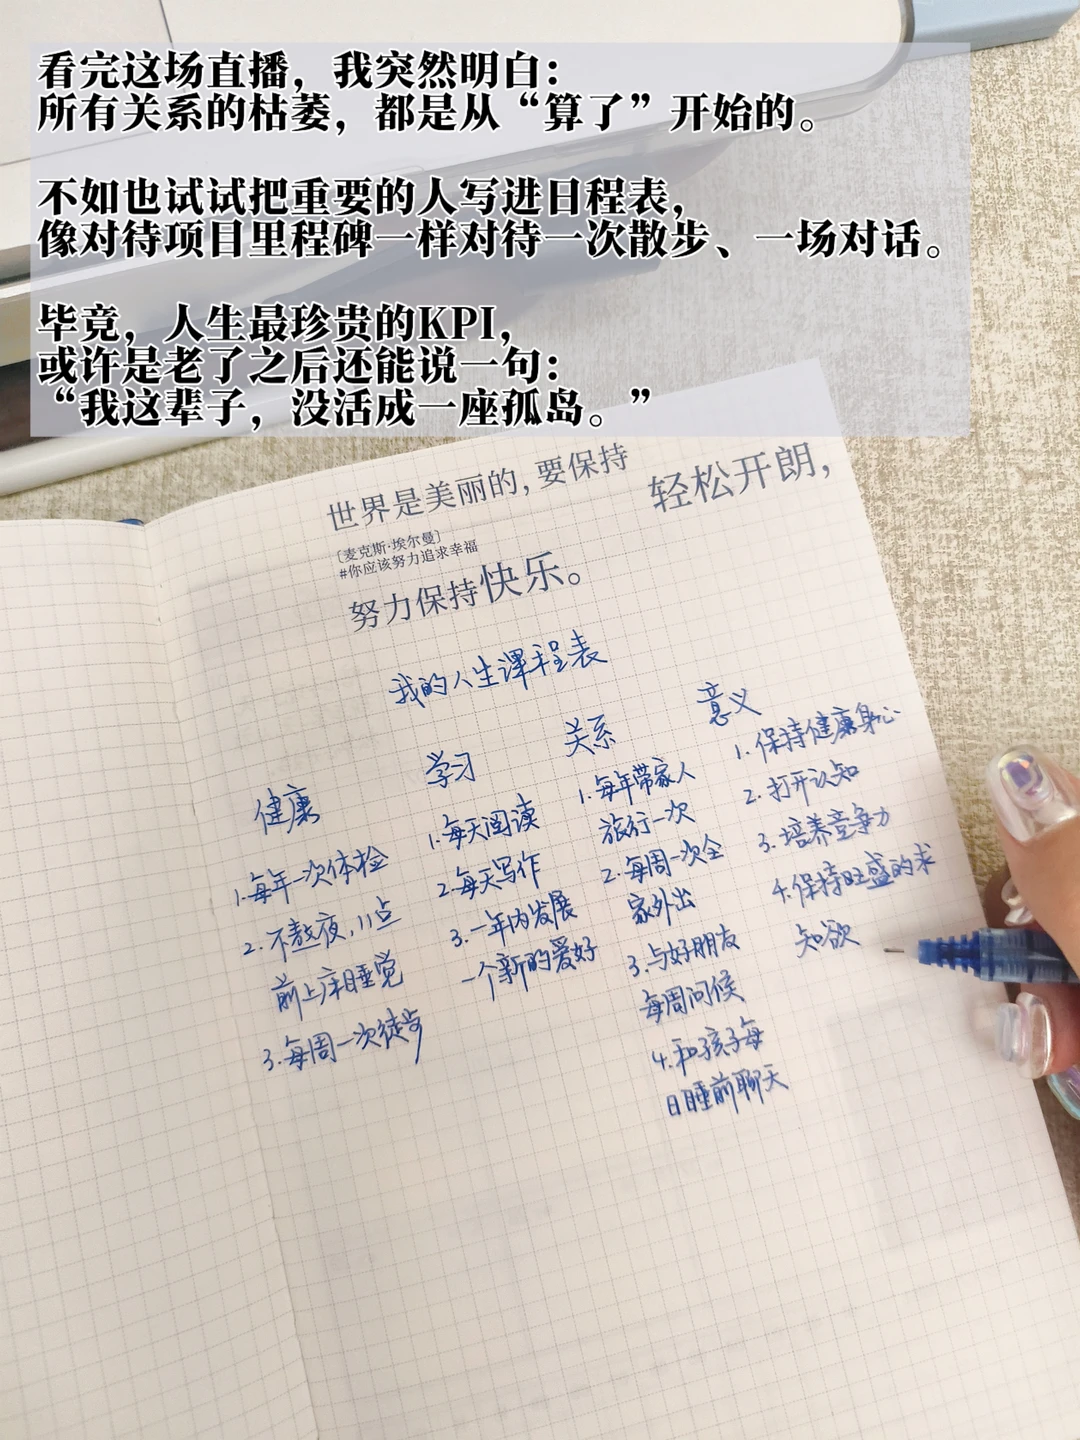 看完这场直播，我突然明白：
所有关系的枯萎，都是从“算了”开始的。
不如也试试把重要的人写进日程表，
像对待项目里程碑一样对待一次散步、一场对话。
毕竟，人生最珍贵的KPI，
或许是老了之后还能说一句：
“我这辈子，没活成一座孤岛。”
世界是美丽的，要保持
轻松开朗，
[麦克斯·埃尔曼]
#你应该努力追求幸福
努力保持快乐。
我的人生课程表
健康
1.每年一次体检
2.不熬夜，11点
前上床睡觉
3.每周一次徒步
学习
1.每天阅读
2.每天写作
3.一年内发展
一个新的爱好
关系
1.每年带家人
旅行一次
2.每周一次全
家外出
3.与好朋友
每周问候
4.和孩子每
日睡前聊天
意义
1.保持健康身心
2.打开认知
3.培养竞争力
4.保持旺盛的求
知欲